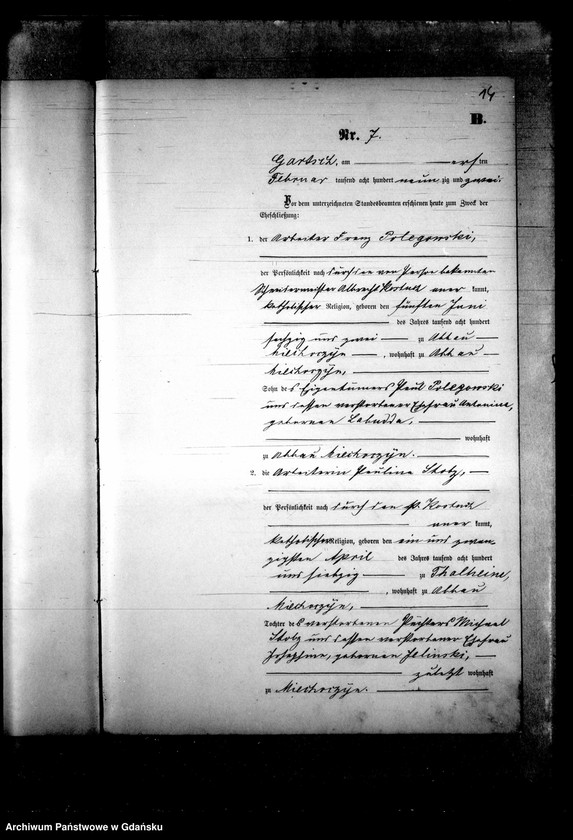 14
B.
Nr. 7.
Gartsch, am ersten
Februar tausend acht hundert neunzig und zwei.
Vor dem unterzeichneten Standesbeamten erschienen heute zum Zweck der
Eheschließung:
1. der Arbeiter Franz Polegowski,
der Persönlichkeit nach durch den von Person bekannten
Albrecht aner kannt,
katholischer Religion, geboren den fünften Juni
des Jahres tausend acht hundert
sechzig und zwei zu Abbau
, wohnhaft zu Abbau
Sohn des Eigentümers Paul Polegowski
und dessen verstorbener Ehefrau Antonina,
geborenen Labudda,
wohnhaft
zu Abbau
2. die Arbeiterin Pauline Stolz,
der Persönlichkeit nach durch den p.
aner kannt,
katholischer Religion, geboren den ein und zwan
zigsten April des Jahres tausend acht hundert
und siebzig zu
, wohnhaft zu Abbau
Tochter des verstorbenen Pächters Michael
Stolz und dessen verstorbener Ehefrau
Josephine, geborenen Jelinski,
zuletzt wohnhaft
zu
Archiwum Państwowe w Gdańsku